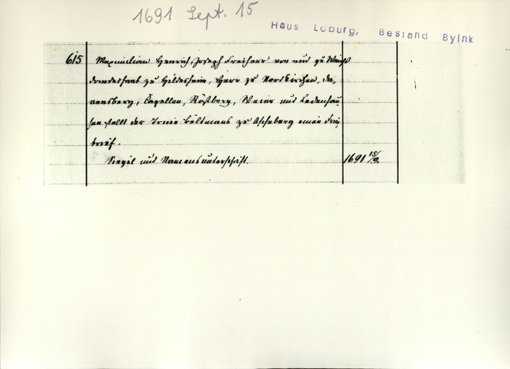 1691 Sept. 15
Haus Loburg, Bestand Byink
615 Maximilian Heinrich Joseph Freiherr von und zu Weichs
Domdechant zu Hildesheim, Herr zu Nordkirchen, Da-
vensberg, Capellen, Rösberg, Weior und Ledenhau-
sen stellt der Irmie Beltmans zu Ascheberg einen Frei-
brief.
Siegel und Namensunterschrift.
1691 15/9.